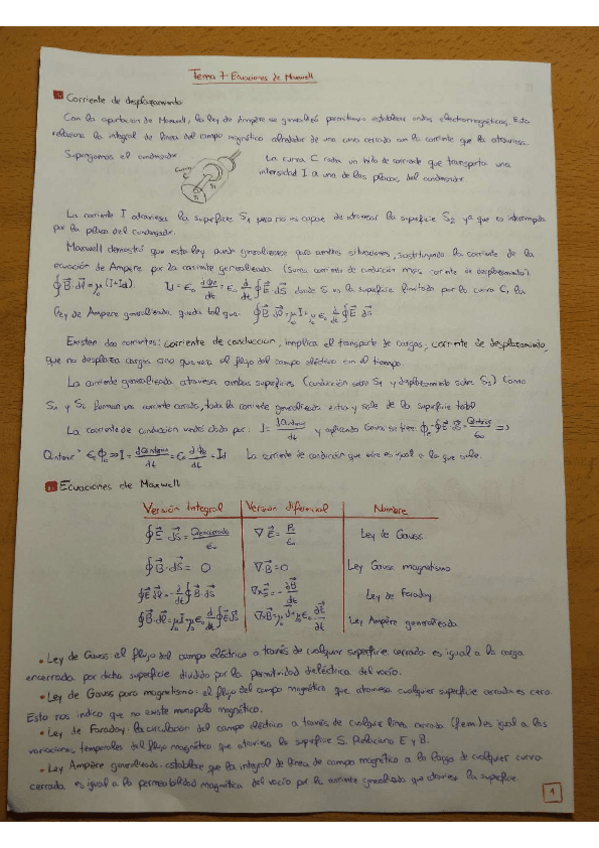 Tema 7-Ecuaciones de Maxwell
Corriente de desplazamiento
Con la aportación de Maxwell, la ley de Ampère se generalizó permitiendo establecer ondas electromagnéticas. Esta
relaciona la integral de línea del campo magnético alrededor de una curva cerrada con la corriente que la atraviesa.
Supongamos el condensador
Curva C
La curva C rodea un hilo de corriente que transporta una
intensidad I a una de las placas del condensador.
La corriente I atraviesa la superficie S₁ pero no es capaz de atravesar la superficie S₂ ya que es interrumpida
por la placa del condensador.
Maxwell demostró que esta ley puede generalizarse para ambas situaciones, sustituyendo la corriente de la
ecuación de Ampère por la corriente generalizada (suma corriente de conducción más corriente de desplazamiento)
∮B·dl = μ₀(I+Id). Id = ε₀ dΦe/dt = ε₀ d/dt ∮E dS donde S es la superficie limitada por la curva C, la
ley de Ampère generalizada, queda tal que: ∮B·dl = μ₀I + μ₀ε₀ d/dt ∮E dS
Existen dos corrientes: corriente de conducción, implica el transporte de cargas, corriente de desplazamiento,
que no desplaza cargas sino que varía el flujo del campo eléctrico con el tiempo.
La corriente generalizada atraviesa ambas superficies (conducción sobre S₁ y desplazamiento sobre S₂) Como
S₁ y S₂ forman una corriente cerrada, toda la corriente generalizada entra y sale de la superficie total
La corriente de conducción vendrá dada por: I = dQinterior/dt y aplicando Gauss se tiene: Φe = ∮E dS = Qinterior/ε₀ =>
Qinterior = ε₀Φe => I = dQinterior/dt = ε₀ dΦe/dt = Id La corriente de conducción que entra es igual a la que sale.
Ecuaciones de Maxwell
Versión Integral | Versión diferencial | Nombre
∮E dS = Qencerrada/ε₀ | ∇E = ρ/ε₀ | Ley de Gauss
∮B·dS = 0 | ∇·B = 0 | Ley Gauss magnetismo
∮E dl = - d/dt ∮B·dS | ∇×E = - ∂B/∂t | Ley de Faraday
∮B·dl = μ₀I + μ₀ε₀ d/dt ∮E dS | ∇×B = μ₀J + μ₀ε₀ ∂E/∂t | Ley Ampère generalizada
• Ley de Gauss: el flujo del campo eléctrico a través de cualquier superficie cerrada es igual a la carga
encerrada por dicha superficie dividido por la permitividad dieléctrica del vacío.
• Ley de Gauss para magnetismo: el flujo del campo magnético que atraviesa cualquier superficie cerrada es cero.
Esto nos indica que no existe monopolo magnético.
• Ley de Faraday: la circulación del campo eléctrico a través de cualquier línea cerrada (fem) es igual a las
variaciones temporales del flujo magnético que atraviesa la superficie S. Relaciona E y B.
• Ley Ampère generalizada: establece que la integral de línea de campo magnético a lo largo de cualquier curva
cerrada es igual a la permeabilidad magnética del vacío por la corriente generalizada que atraviesa la superficie.
1